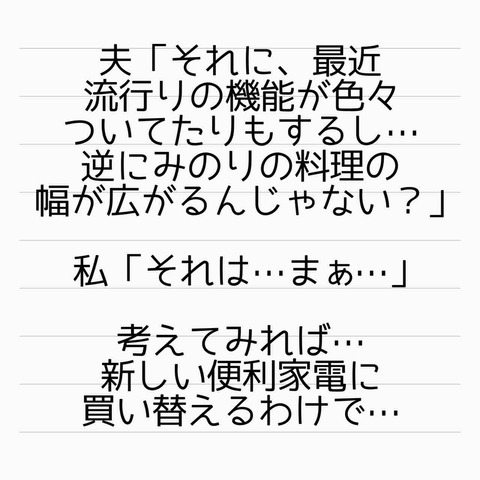 夫「それに、最近
流行りの機能が色々
ついてたりもするし…
逆にみのりの料理の
幅が広がるんじゃない？」
私「それは…まぁ…」
考えてみれば…
新しい便利家電に
買い替えるわけで…